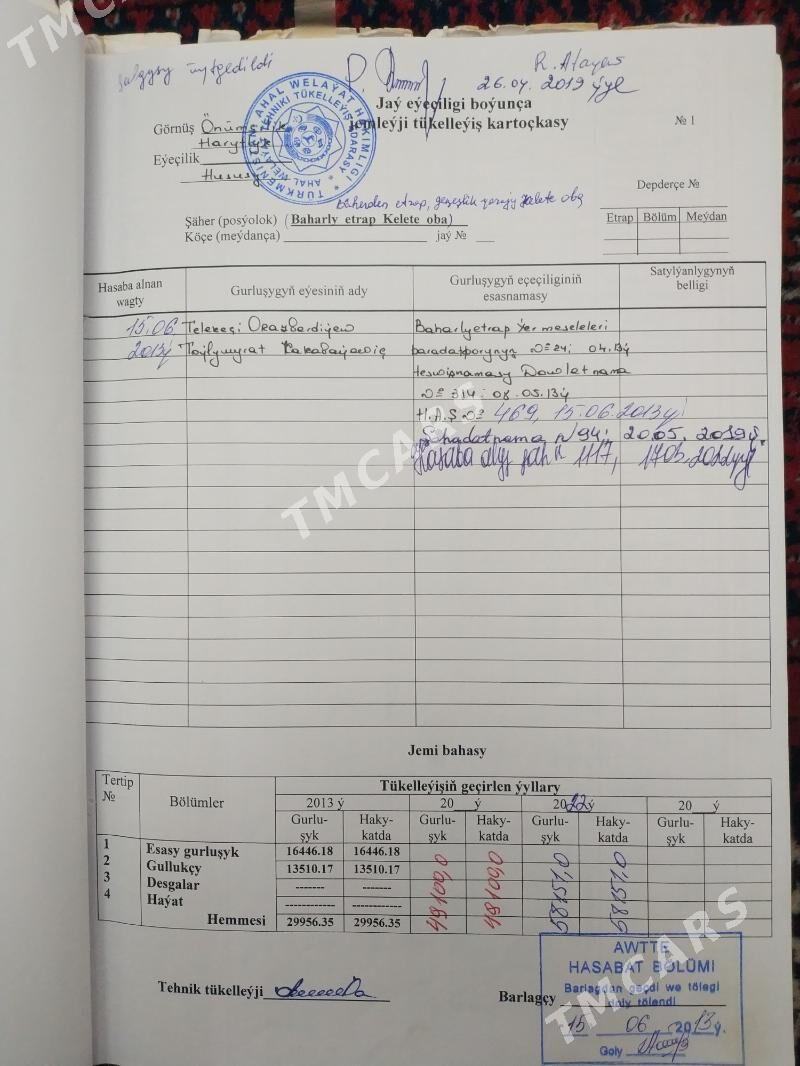 TMCARS
salgysy üýtgedildi
R. Atayew
26.04.2019 ýyl
TÜRKMENISTAN AHAL WELAÝAT HÄKIMLIGI
AHAL WELAÝAT TEHNIKI TÜKELLEÝIŞ EDARASY
Jaý eýeçiligi boýunça
jemleýji tükelleýiş kartoçkasy
№ 1
Görnüş Önümçilik
Harytlyk
Eýeçilik
Hususy
Depderçe №
Etrap Bölüm Meýdan
Bäherden etrap, geňeşlik Kelete oba
Şäher (posýolok) (Baharly etrap Kelete oba)
Köçe (meýdança) jaý №
Hasaba alnan wagty
Gurluşygyň eýesiniň ady
Gurluşygyň eçeçiliginiň esasnamasy
Satylýanlygynyň belligi
15.06. Telekeçi Orazberdiýew Baharly etrap Ýer meseleleri
2013ý Taýlymyrat № 24; 04.13ý
Döwletnama
№ 314; 08.05.13ý
H.A.Ş № 469, 15.06.2013ý
Şahadatnama N 94; 20.05.2019ý.
Hasaba alyş şah № 1117,
Jemi bahasy
Tertip №
Bölümler
Tükelleýişiň geçirlen ýyllary
2013 ý 20 ý 2022ý 20 ý
Gurluşyk Hakykatda Gurluşyk Hakykatda Gurluşyk Hakykatda Gurluşyk Hakykatda
1 Esasy gurluşyk 16446.18 16446.18
2 Gullukçy 13510.17 13510.17
3 Desgalar ------- -------
4 Haýat ------------ ------------
Hemmesi 29956.35 29956.35
Tehnik tükelleýji
Barlagçy
AWTTE
HASABAT BÖLÜMI
Barlagdan geçdi we tölegi
doly tölendi
15 06 2013ý.
Goly
TMCARS
TMCARS